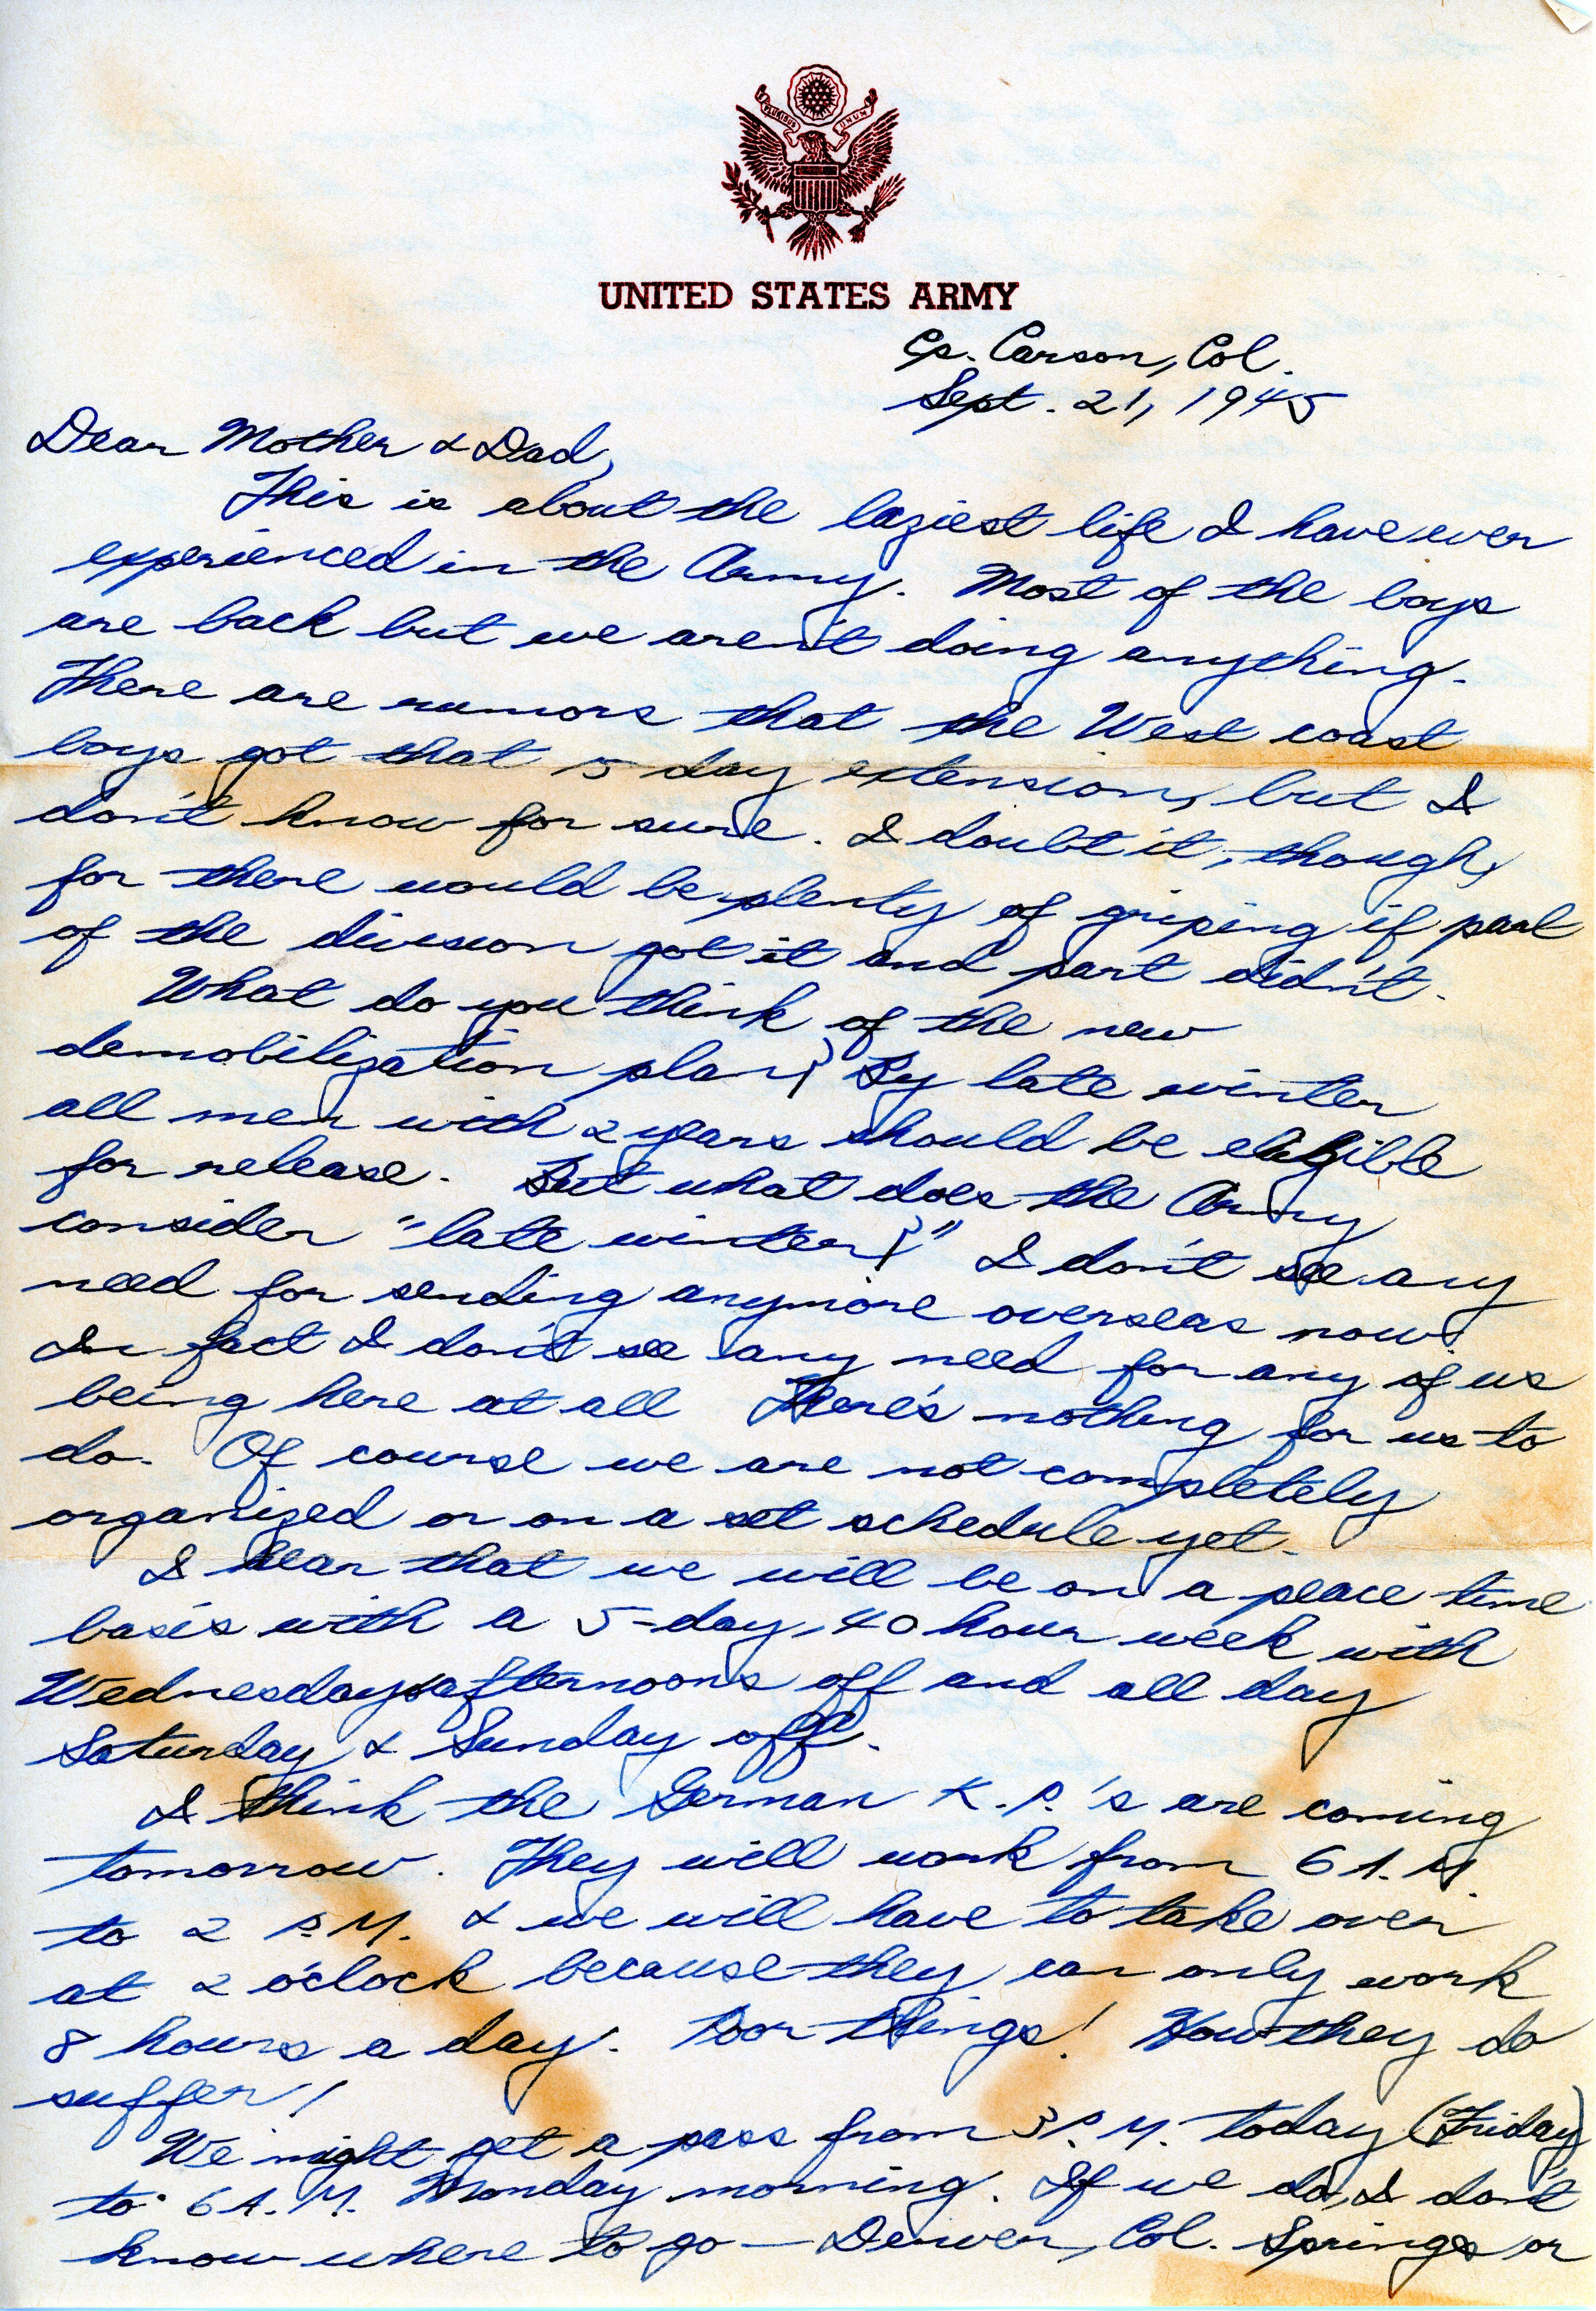 PLURIBUS UNUM
UNITED STATES ARMY
Cp. Carson, Col.
Sept. 21, 1945
Dear Mother & Dad,
This is about the laziest life I have ever
experienced in the Army. Most of the boys
are back but we aren't doing anything.
There are rumors that the West coast
boys got that 5 day extension, but I
don't know for sure. I doubt it, though,
for there would be plenty of griping if part
of the division got it and part didn't.
What do you think of the new
demobilization plan? By late winter
all men with 2 years should be eligible
for release. But what does the Army
consider "late winter?" I don't see any
need for sending anymore overseas now.
In fact I don't see any need for any of us
being here at all There's nothing for us to
do. Of course we are not completely
organized or on a set schedule yet.
I hear that we will be on a peace time
basis with a 5-day, 40 hour week with
Wednesdays afternoons off and all day
Saturday & Sunday off.
I think the German K.P.'s are coming
tomorrow. They will work from 6 A.M.
to 2 P.M. & we will have to take over
at 2 o'clock because they can only work
8 hours a day. Poor things! How they do
suffer!
We might get a pass from 3 P.M. today (Friday)
to 6 A.M. Monday morning. If we do, I don't
know where to go — Denver, Col. Springs or